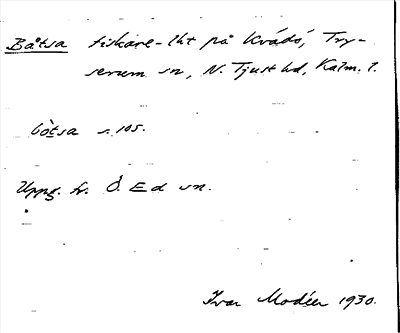 Båtsa fiskare-lht på Kvädö, Try-
serum sn, N. Tjust hd, Kalm. l.
bòtsa s. 105.
Uppg. fr. Ö. Ed sn.
Ivar Modéer 1930.